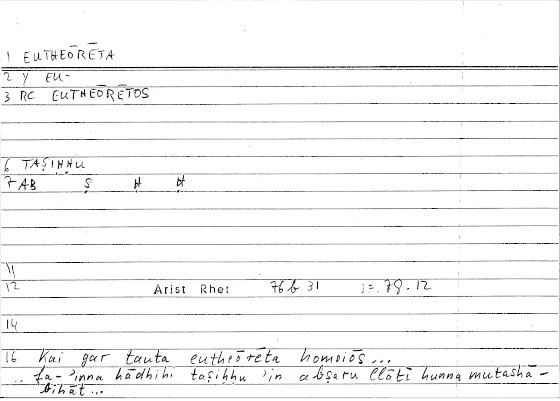 1 EUTHEŌRĒTA
2 Y EU-
3 RC EUTHEŌRĒTOS
6 TAṢIḤḤU
7 AB Ṣ Ḥ Ḥ
11
12 Arist Rhet 76b 31 i=. 78.12
14
16 Kai gar tauta eutheōrēta homoiōs...
.. fa-'inna hādhihi taṣiḥḥu 'in abṣaru llātī hunna mutashā-
bihāt...